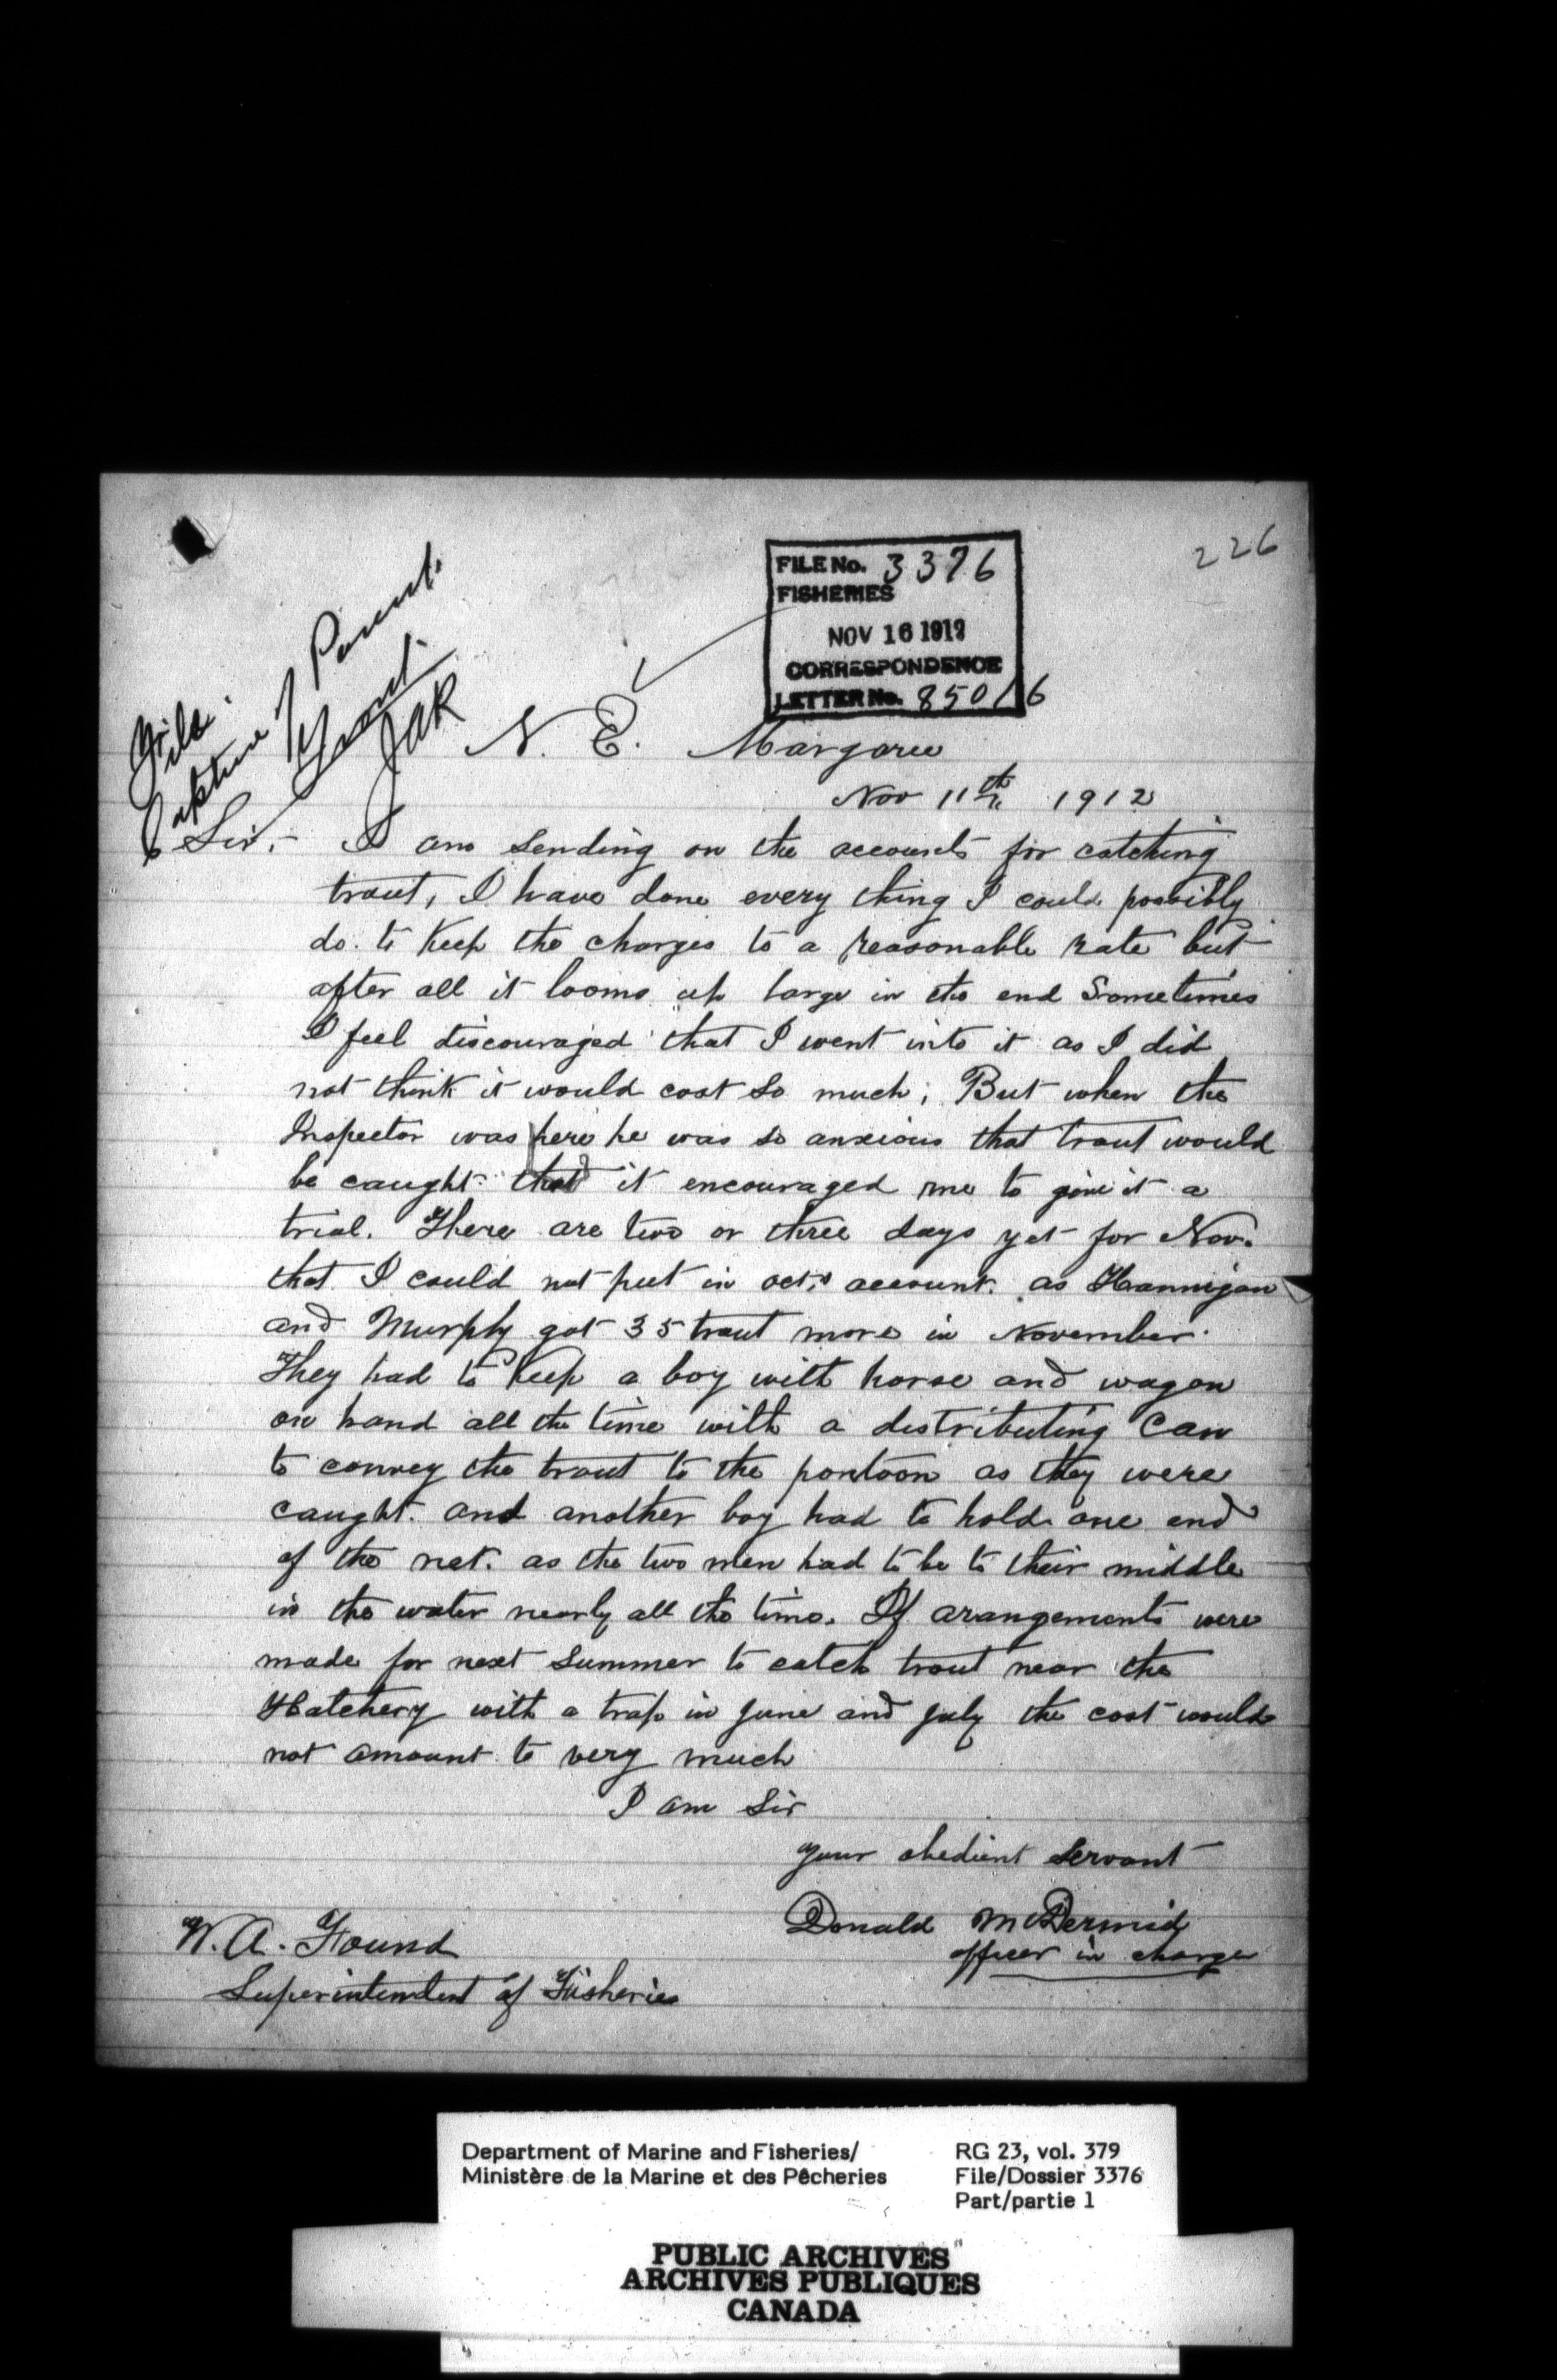 226
FILE No. 3376
FISHERIES
NOV 16 1912
CORRESPONDENCE
LETTER No. 85016
File.
Capture of Parent
Trout.
JAR
N. E. Margaree
Nov 11th 1912
Sir,- I am sending on the accounts for catching
trout, I have done every thing I could possibly
do. to keep the charges to a reasonable rate but
after all it looms up large in the end Sometimes
I feel discouraged that I went into it as I did
not think it would cost so much; But when the
Inspector was here he was so anxious that trout would
be caught that it encouraged me to give it a
trial. There are two or three days yet for Nov.
that I could not put in oct,s account. as Hannigan
and Murphy got 35 trout more in November.
They had to keep a boy with horse and wagon
on hand all the time with a distributing Can
to convey the trout to the pontoon as they were
caught. and another boy had to hold one end
of the net. as the two men had to be to their middle
in the water nearly all the time. If arangements were
made for next Summer to catch trout near the
Hatchery with a trap in June and July the cost would
not amount to very much
I am Sir
your obedient Servant
Donald McDermid
officer in charge
W. A. Found
Superintendent of Fisheries
Department of Marine and Fisheries/
Ministère de la Marine et des Pêcheries
RG 23, vol. 379
File/Dossier 3376
Part/partie 1
PUBLIC ARCHIVES
ARCHIVES PUBLIQUES
CANADA